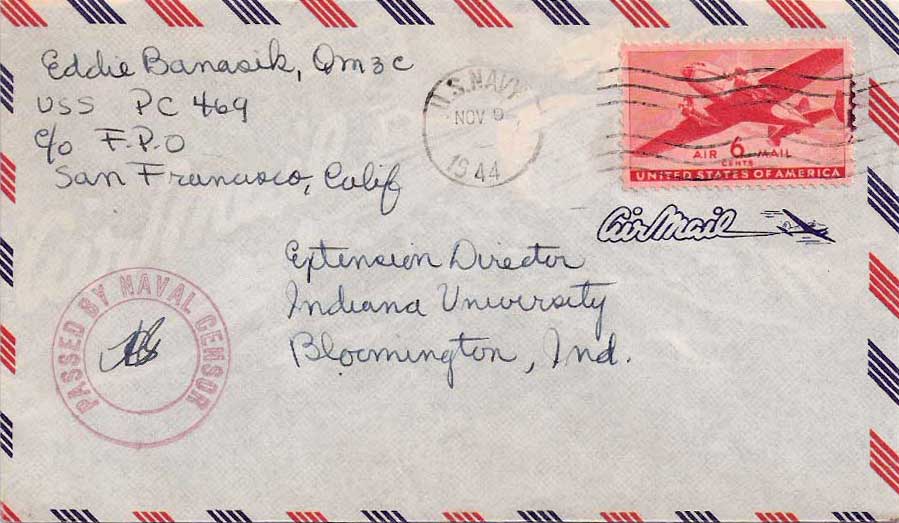 Eddie Banasik, QM3C
USS PC 469
c/o F.P.O
San Francisco, Calif
U.S. NAVY
NOV 9
1944
AIR 6 MAIL
CENTS
UNITED STATES OF AMERICA
Air Mail
Extension Director
Indiana University
Bloomington, Ind.
PASSED BY NAVAL CENSOR